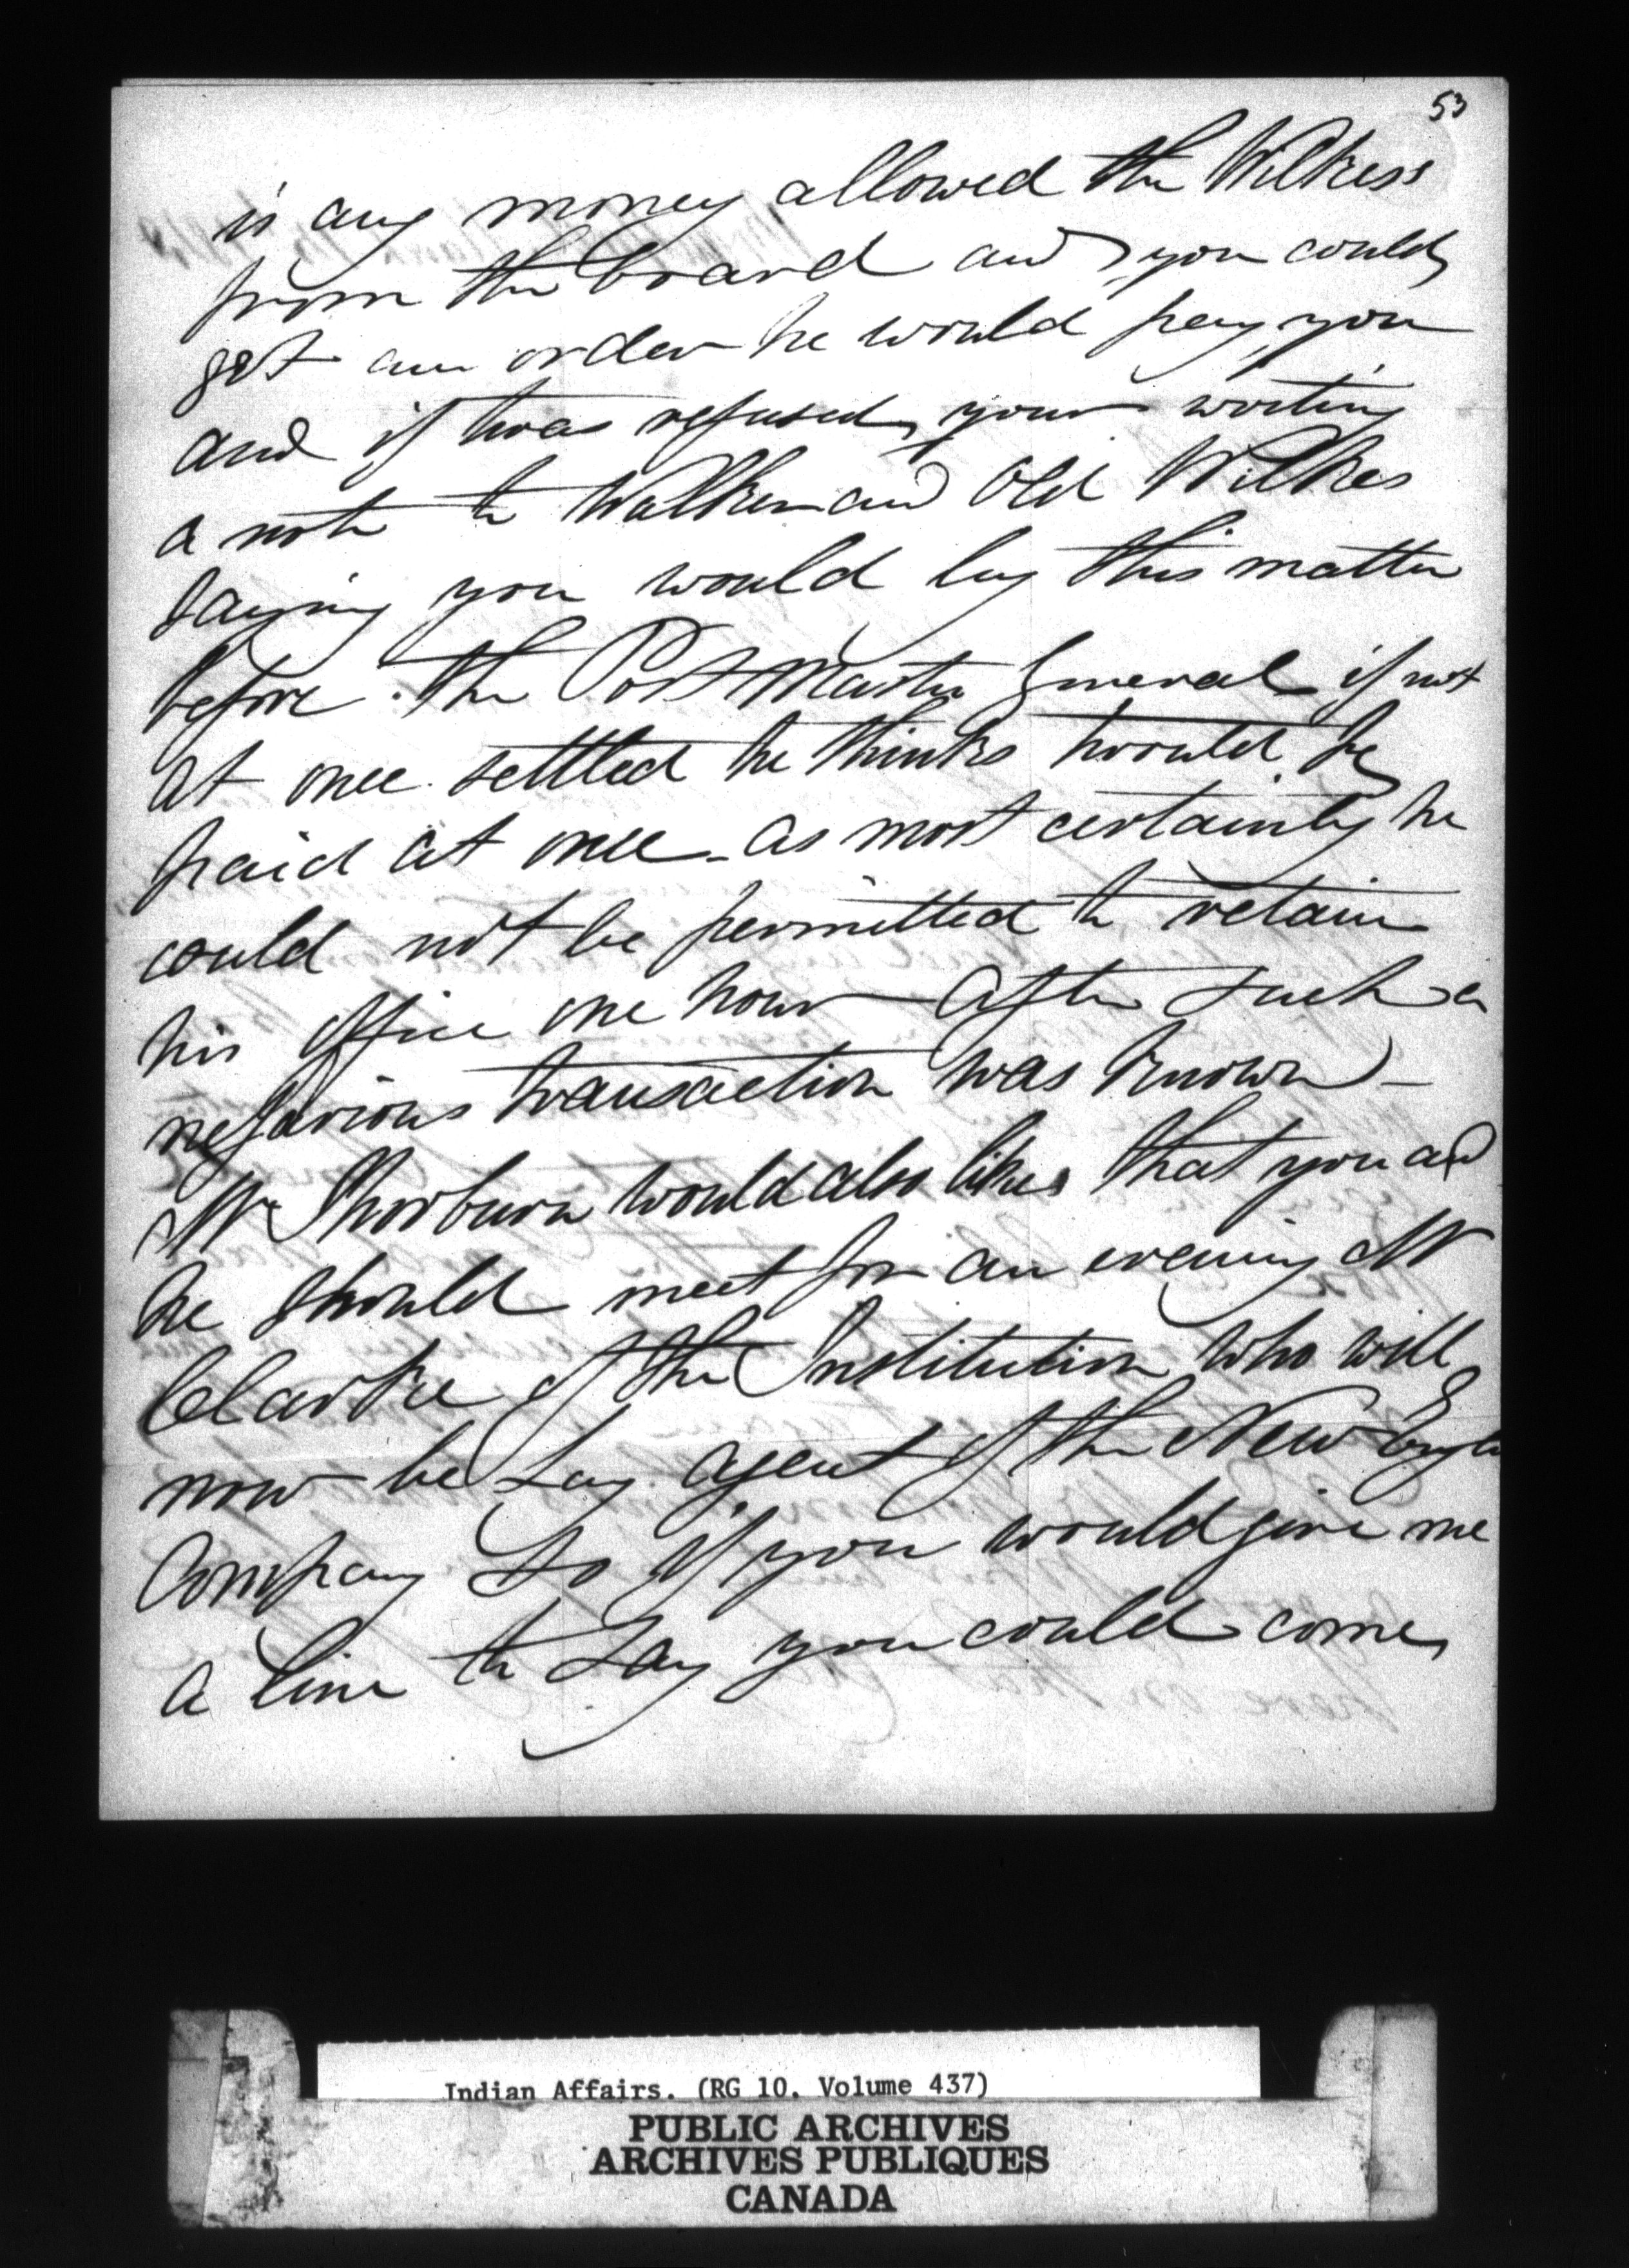 53
is any money allowed the Wilkess
from the board and you could
get an order he would pay you
and if twas refused, your writing
a note to Walker and Old Wilkes
saying you would lay this matter
before the Post Master General if not
at once settled he thinks twould be
paid at once - as most certainly he
could not be permitted to retain
his office one hour after such a
nefarious transaction was known -
Mr Thorburn would also likes that you and
he should meet for an evening Mr
Clarke of the Institution who will
now be Lay agent of the New Engla
Company so if you would give me
a line to say you could come
Indian Affairs. (RG 10, Volume 437)
PUBLIC ARCHIVES
ARCHIVES PUBLIQUES
CANADA